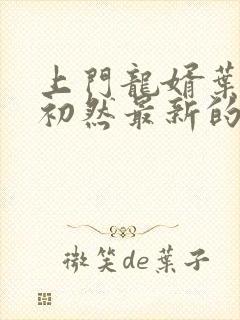 上門龍婿葉
初然最新的
微笑de葉子